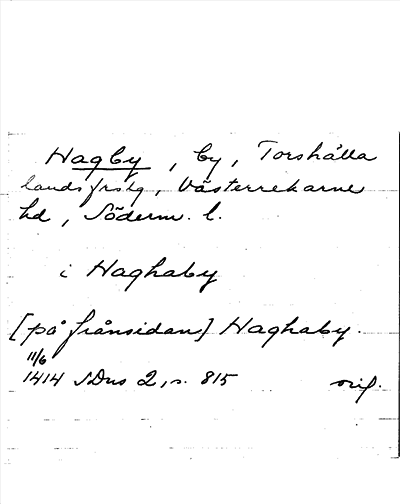 Hagby, by, Torshälla
landsfrskg, Västerrekarne
hd, Söderm. l.
i Haghaby
[på frånsidan] Haghaby.
11/6
1414 SDns 2, s. 815 orig.